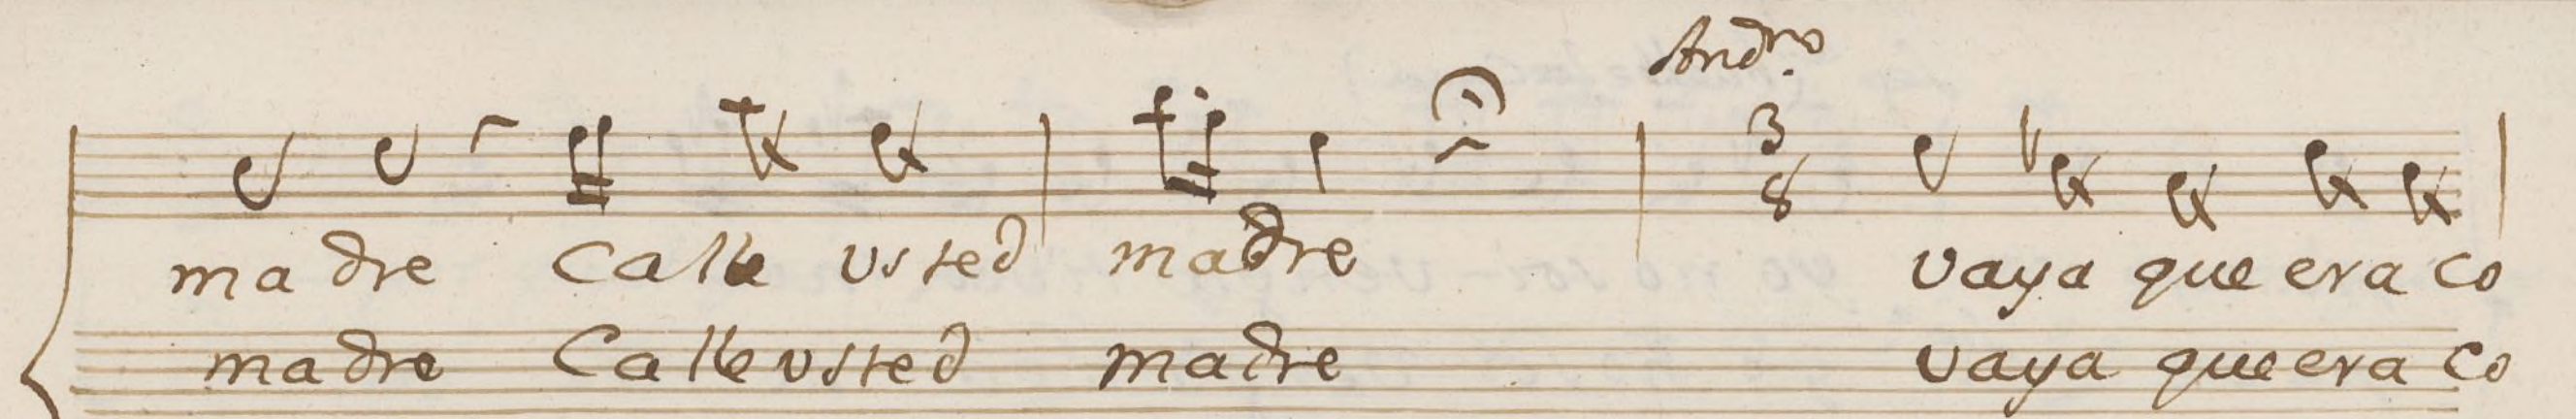 Andno.
3
8
madre Calle usted madre vaya que era co
madre Calle usted madre vaya que era co